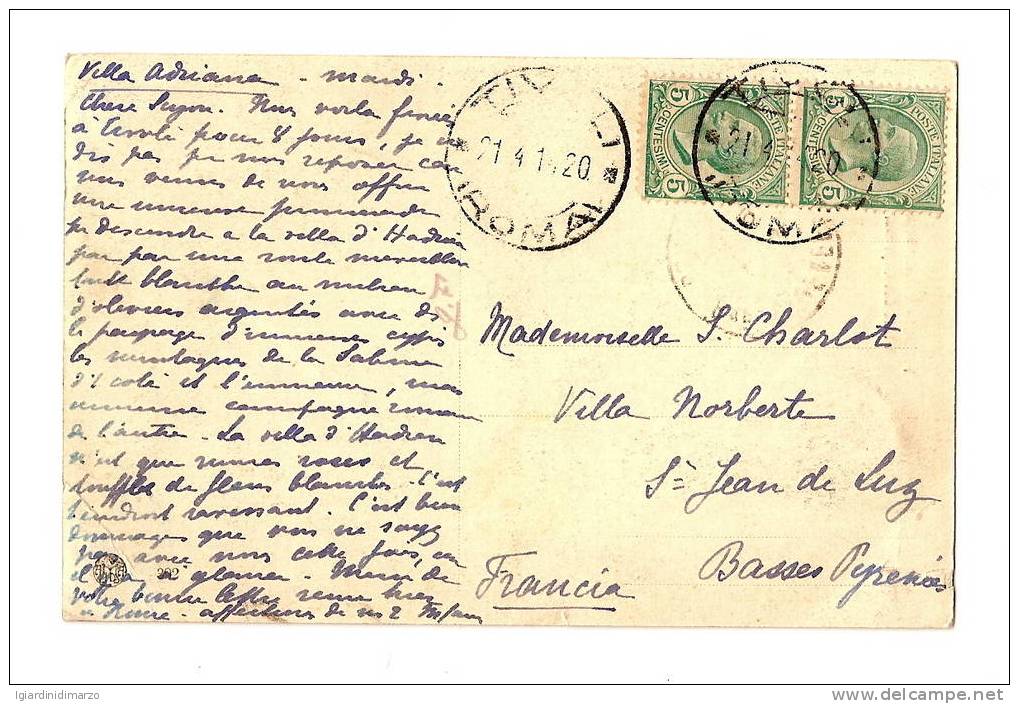 Villa Adriana - mardi.
Chère Suzon. Nous voilà fixées
à Tivoli pour 8 jours, je ne
dis pas pr nous reposer car
nous venons de nous offrir
une immense promenade
pr descendre à la villa d'Hadrien
par une route merveilleuse
toute blanche au milieu
d'oliviers argentés avec de
le paysage d'immenses cyprès
les montagnes de la Sabine
d'1 coté et l'immense, mais
immense campagne romaine
de l'autre. La villa d'Hadrien
n'est que ruines roses et
touffes de fleurs blanches. C'est
l'endroit ravissant. C'est bien
dommages que vous ne soyez
pas avec nous cette fois, on
il a glaner. Merci de
votre bonne lettre reçue hier
à Rome. affections de ns 2
282
TIVOLI
21.4.14.20
(ROMA)
5 CENTESIMI 5
POSTE ITALIANE
TIVOLI
21.4. 20
(ROMA)
5 CENTESIMI 5
POSTE ITALIANE
Mademoiselle S. Charlot
Villa Norberte
St Jean de Luz
Basses Pyrenées
Francia
igiardinidimarzo
delcampe.net